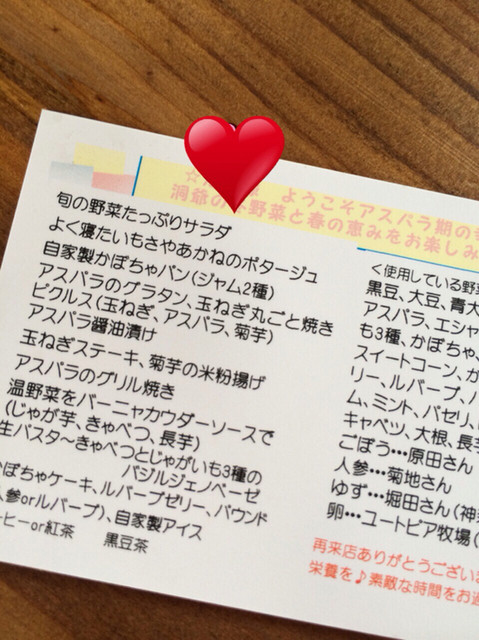 ようこそアスパラ期の
洞爺の
野菜と春の恵みをお楽しみ
旬の野菜たっぷりサラダ
よく寝たいもさやあかねのポタージュ
自家製かぼちゃパン(ジャム2種)
アスパラのグラタン、玉ねぎ丸ごと焼き
ピクルス(玉ねぎ、アスパラ、菊芋)
アスパラ醤油漬け
玉ねぎステーキ、菊芋の米粉揚げ
アスパラのグリル焼き
温野菜をバーニャカウダーソースで
(じゃが芋、きゃべつ、長芋)
生パスタ～きゃべつとじゃがいも3種の
バジルジェノベーゼ
かぼちゃケーキ、ルバーブゼリー、パウンド
人参orルバーブ)、自家製アイス
ーヒーor紅茶 黒豆茶
<使用している野菜
黒豆、大豆、青大
アスパラ、エシャ
も3種、かぼちゃ、
スイートコーン、か
リー、ルバーブ、
ム、ミント、バセリ、
キャベツ、大根、長芋
ごぼう・・・原田さん
人参・・・菊地さん
ゆず・・・堀田さん(神
卵・・・ユートピア牧場(
再来店ありがとうござい
栄養を♪素敵な時間をお過